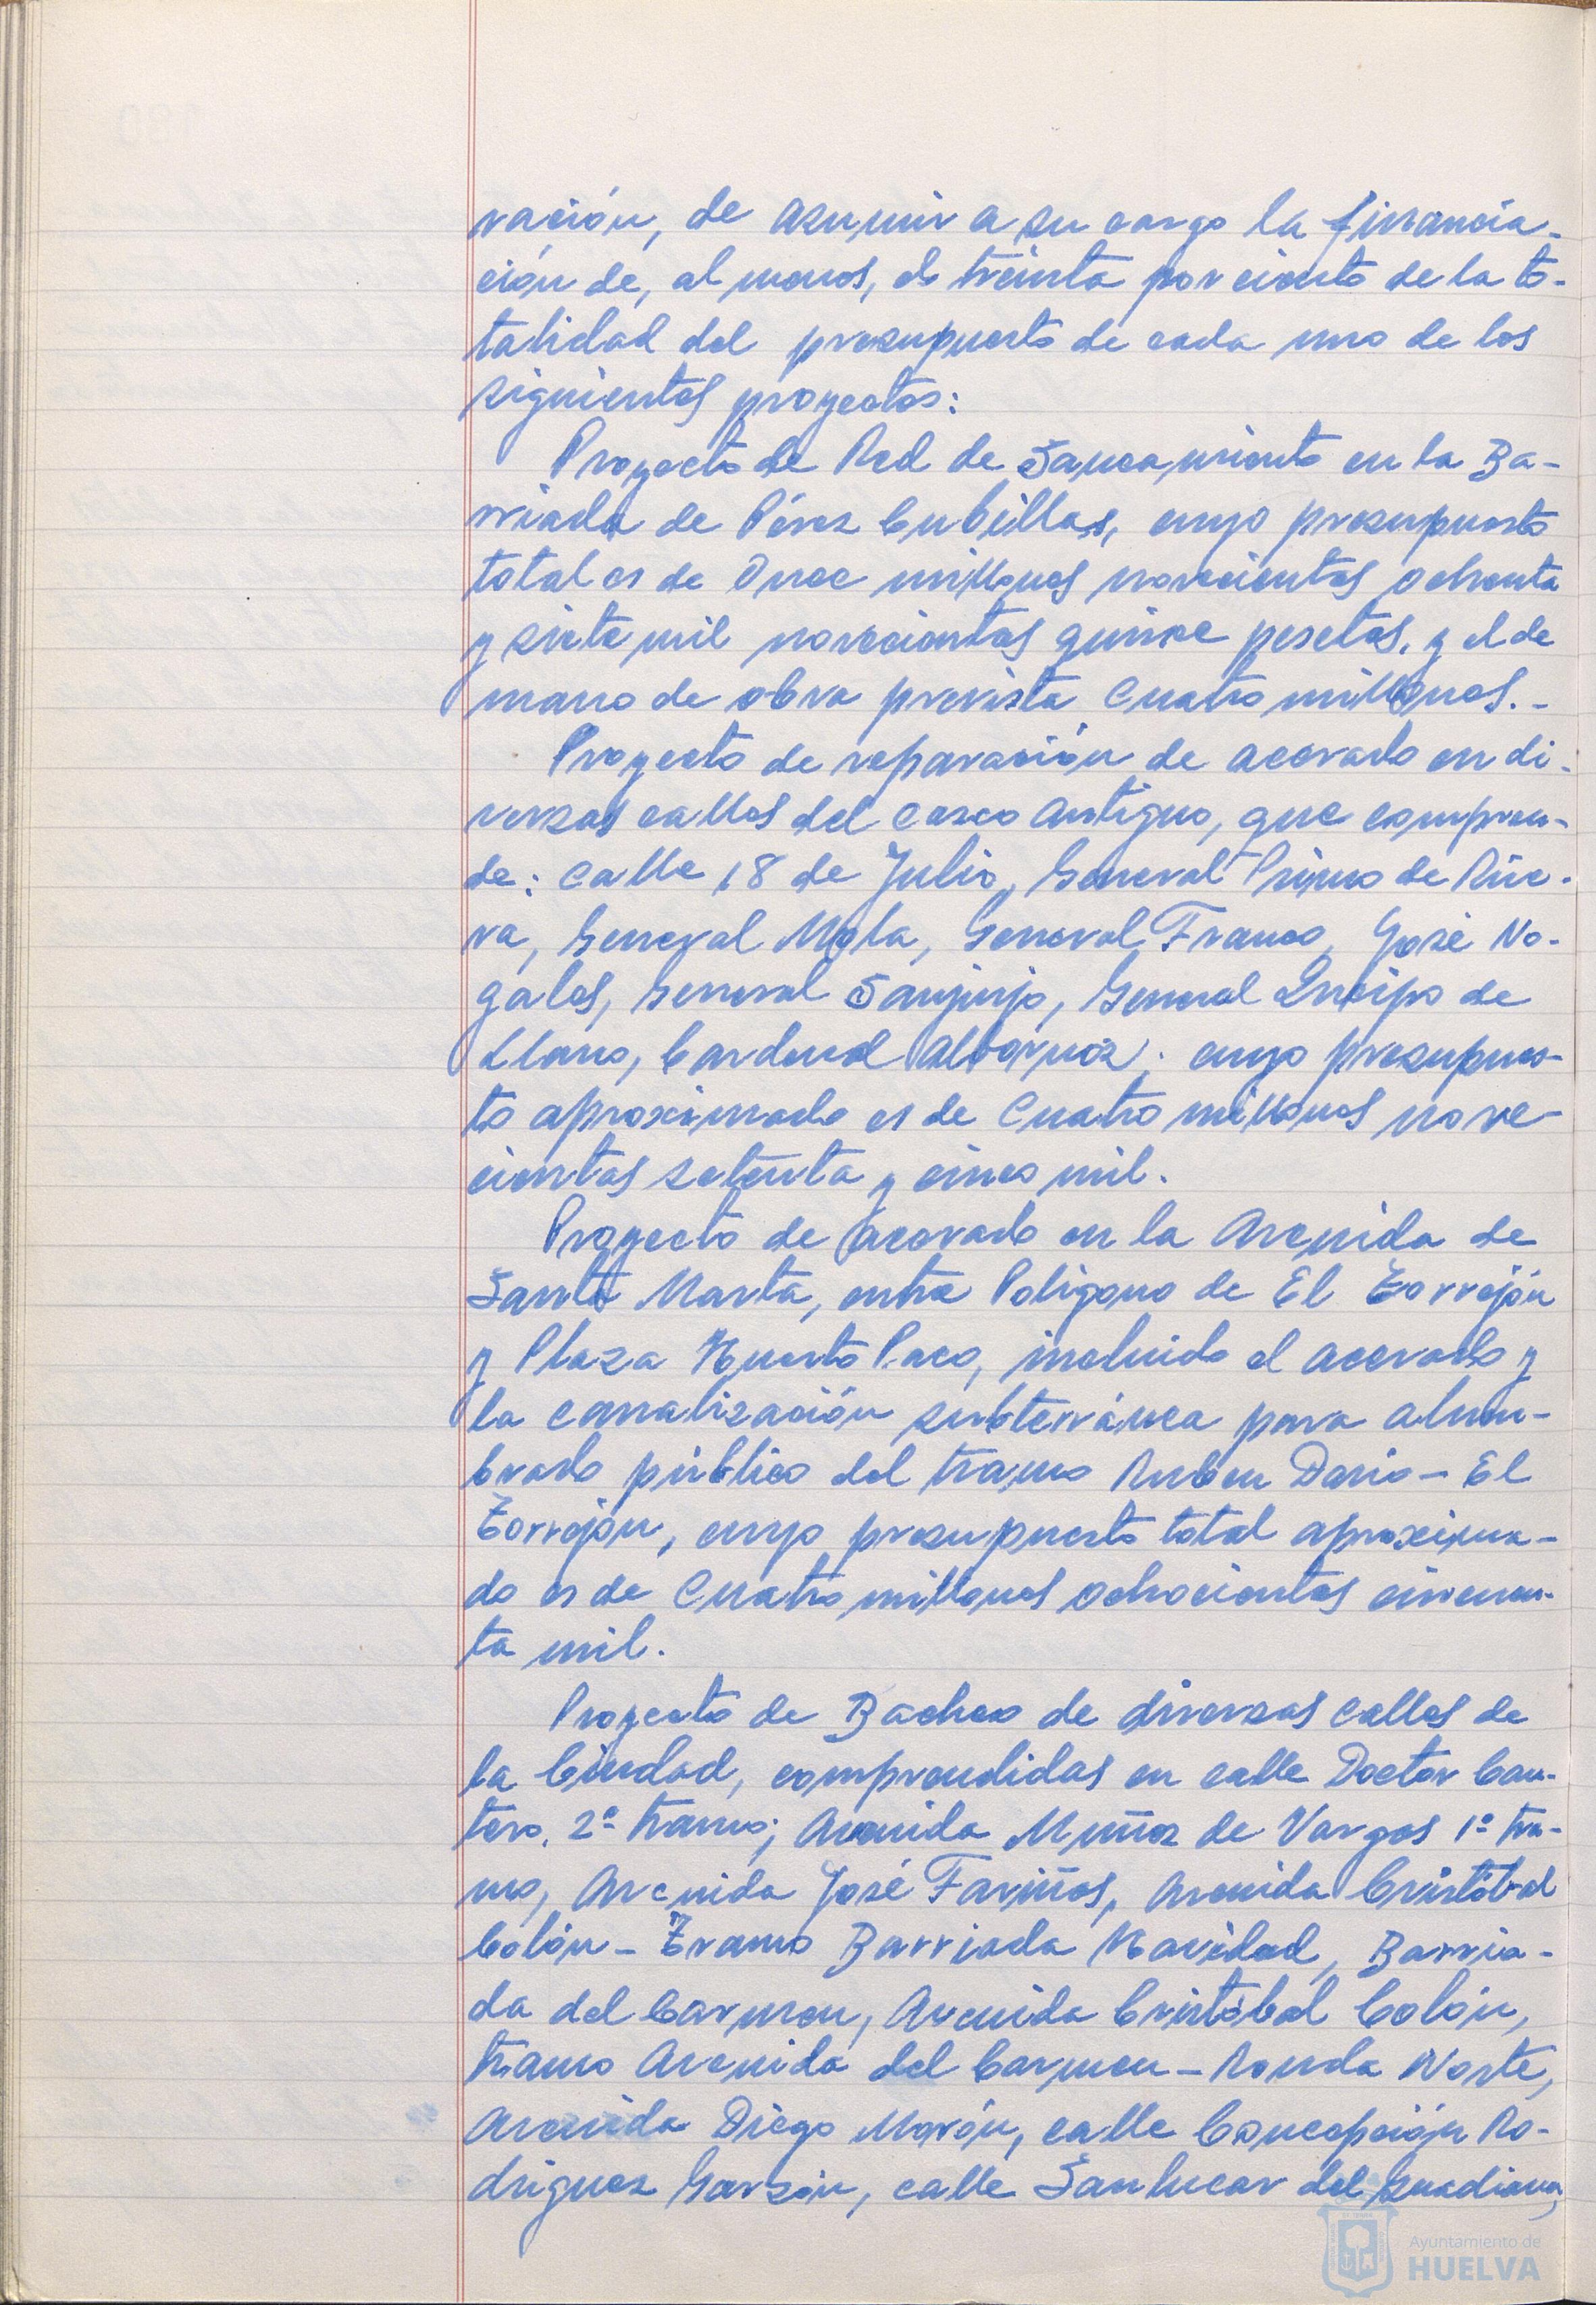 vación, de asumir a su cargo la financia-
ción de, al menos, el treinta por ciento de la to-
talidad del presupuesto de cada uno de los
siguientes proyectos:
Proyecto de Red de Saneamiento en la Ba-
rriada de Pérez Cubillas, cuyo presupuesto
total es de Once millones novecientos ochenta
y siete mil novecientas quince pesetas, y el de
mano de obra prevista Cuatro millones.-
Proyecto de reparación de acerado en di-
versas calles del casco antiguo, que compren-
de: calle 18 de Julio, General Primo de Rive-
ra, General Mola, General Franco, José No-
gales, General Sanjurjo, General Queipo de
Llano, Cardenal Albornoz; cuyo presupues-
to aproximado es de Cuatro millones nove-
cientas setenta y cinco mil.
Proyecto de Acerado en la Avenida de
Santa Marta, entre Polígono de El Torrejón
y Plaza Huerto Paco, incluido el acerado y
la canalización subterránea para alum-
brado público del tramo Ruben Dario - El
Torrejón, cuyo presupuesto total aproxima-
do es de Cuatro millones ochocientas cincuen-
ta mil.
Proyecto de Bacheo de diversas calles de
la Ciudad, comprendidas en calle Doctor Can-
tero, 2º tramo; Avenida Muñoz de Vargas 1º tra-
mo, Avenida José Fariñas, Avenida Cristóbal
Colón - Tramo Barriada Navidad, Barria-
da del Carmen, Avenida Cristóbal Colón,
tramo Avenida del Carmen - Ronda Norte,
Avenida Diego Morón, calle Concepción Ro-
driguez Garzón, calle Sanlucar del Guadiana,
Ayuntamiento de
HUELVA